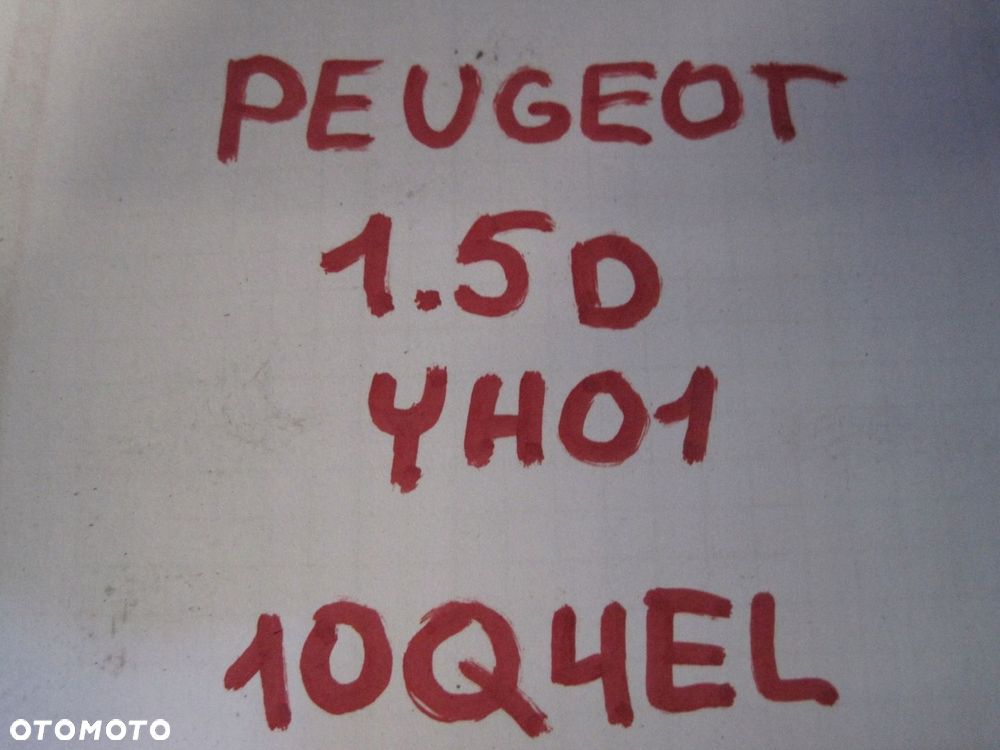 PEUGEOT
1.5D
YH01
10Q4EL
OTOMOTO